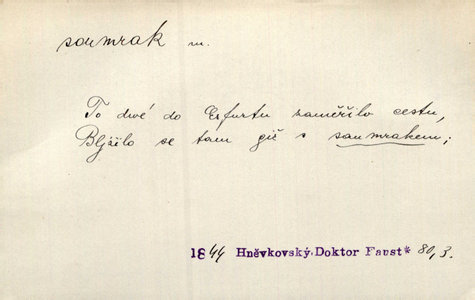 soumrak m.
To dwé do Erfurtu zaměřilo cestu,
Bljžilo se tam giž s soumrakem;
1844 Hněvkovský, Doktor Faust* 80,3.